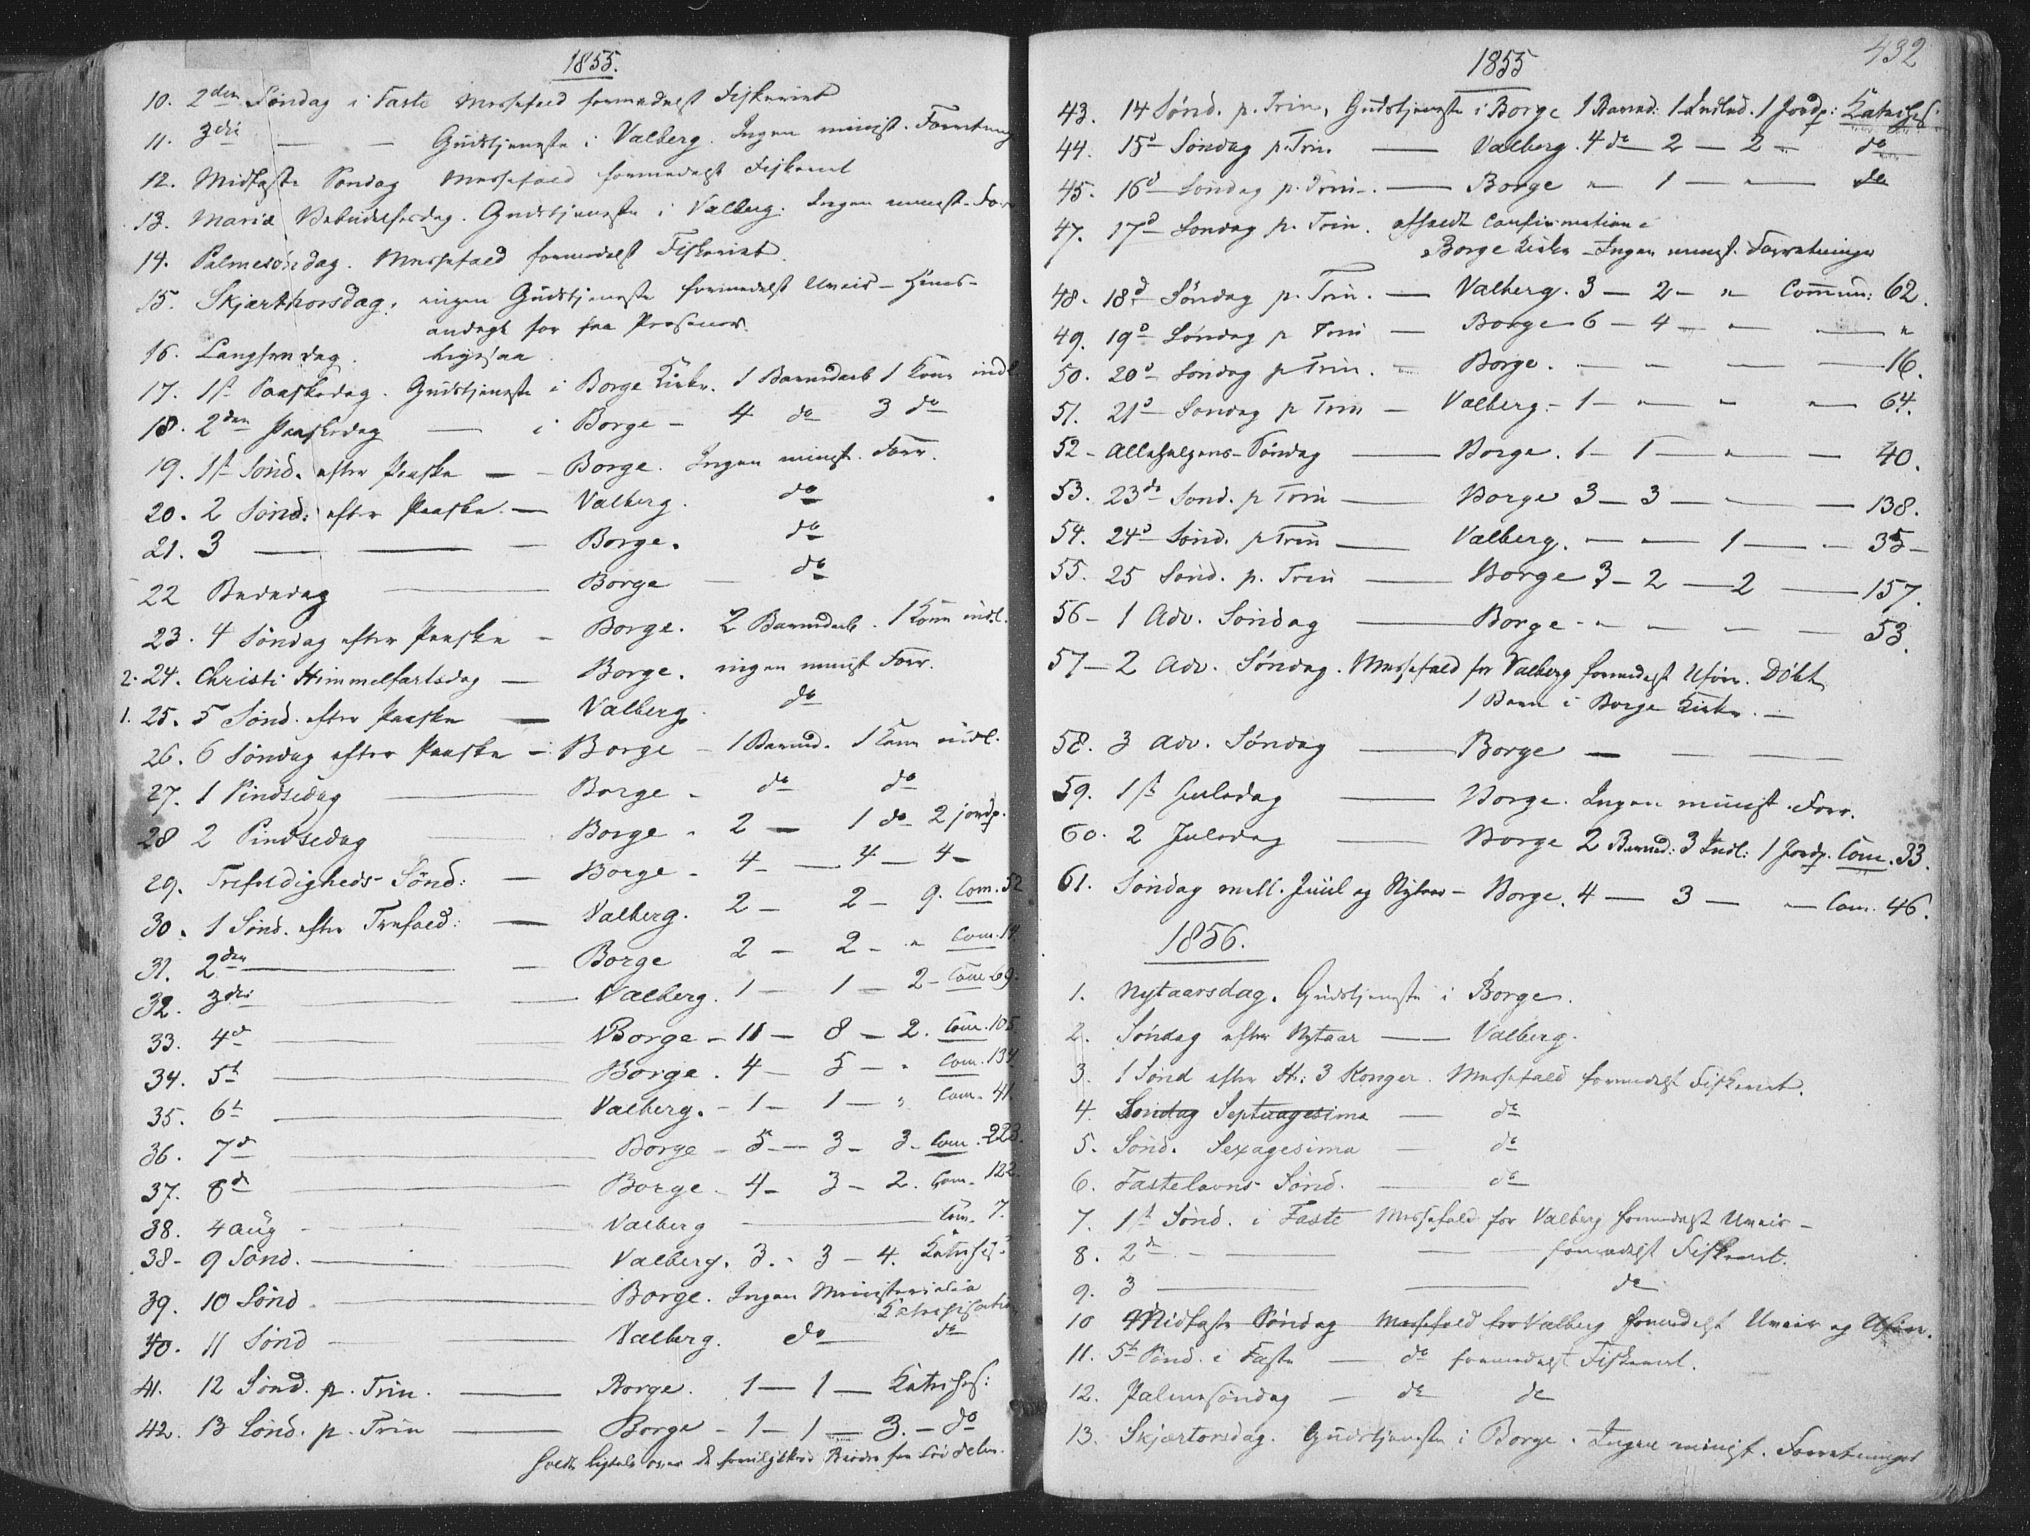 1855.
10. 2den Søndag i Faste Messefald formedelst Fiskeriet
11. 3die — — Gudstjeneste i Valberg. Ingen minist. Forretning
12. Midfaste Søndag Messefald formedelst Fiskeriet
13. Mariæ Bebudelsesdag. Gudstjeneste i Valberg. Ingen minist. For
14. Palmesøndag. Messefald formedelst Fiskeriet.
15. Skjærthorsdag. ingen Gudstjeneste formedelst Uveir – Huus-
andagt for faa Personer.
16. Langfredag. ligesaa.
17. 1st Paaskedag. Gudstjeneste i Borge Kirke. 1 Barnedaab 1 Kone indl
18. 2den Paaskedag — i Borge – 4 do 3 do
19. 1st Sønd. efter Paaske — – Borge. Ingen minist. Forr.
20. 2 Sønd. efter Paaske. — Valberg. do
21. 3 — — – Borge. do
22 Bededag — Borge – do
23. 4 Søndag efter Paaske – Borge. 2 Barnedaab. 1 Kone indl.
2. 24. Christi Himmelfartsdag — Borge. ingen minist Forr.
1. 25. 5 Sønd. efter Paaske — Valberg. do
26. 6 Søndag efter Paaske – Borge – 1 Barned. 1 Kone indl.
27. 1 Pindsedag — Borge – do do
28 2 Pindsedag — Borge – 2 — 1 do 2 jordp.
29. Trefoldigheds-Sønd: — Borge – 4 — 4 – 4 –
30. 1 Sønd. efter Trefold: — Valberg. 2 – 2 – 9. Com. 52
31. 2den — – Borge 2 – 2 – " Com. 14
32. 3die — Valberg. 1 – 1 – 2 – Com 69.
33. 4d — Borge – 11 – 8 – 2. Com. 105
34. 5t — Borge. 4 – 5 – " Com. 134
35. 6t — Valberg. – 1 – 1 – " Com. 41
36. 7d — Borge – 5 — 3 – 3 – Com. 223.
37. 8d — Borge – 4 – 3 – 2. Com. 122.
38. 4 Aug – — Valberg — Com. 7.
38 – 9 Sønd. — Valberg. 3. – 3 – 4. Katechis:
39. 10 Sønd. — Borge. Ingen Ministerialia
Katechisation
40. 11 Sønd — Valberg. do do
41. 12 Sønd. p. Trin. — Borge. 1 — 1 — Katechis:
42. 13 Sønd. p. Trin — Borge – 1 – 1 – 3. – do
432
1855
43. 14 Sønd. p. Trin. Gudstjeneste i Borge 1 Barned: 1 Indled. 1 Jordp: Katechis:
44. 15d Søndag p. Trin. — Valberg. 4 do 2 — 2 – do
45. 16d Søndag p. Trin. — Borge " 1 — " — do
47. 17d Søndag p. Trin. afholdt Confirmation i
Borge Kirke – Ingen minist. Forretninger
48. 18d Søndag p. Trin. — Valberg. 3 – 2 – " Commun: 62.
49. 19d Søndag p Trin — Borge 6 – 4 – " — "
50. 20d Søndag p Trin. – Borge. – – – — 16.
51. 21d Søndag p Trin – Valberg. – 1 – " " " – 64.
52 – Allehelgens-Søndag — Borge. 1 – 1 – " – 40.
53. 23de Sønd. p Trin — Borge 3 – 3 – – — 138.
54. 24d Sønd. p Trin — Valberg. – – 1 — – 35 –
55. 25 Sønd. p. Trin — Borge 3 – 2 – 2 — 157.
56 – 1 Adv. Søndag — Borge – " – – – 53.
57 – 2 Adv. Søndag. Messefald for Valberg formedelst Uføre. Døbt
1 Barn i Borge Kirke. –
58. 3 Adv. Søndag — Borge — – —
59. 1st Juledag — Borge. Ingen minist. Forr.
60. 2 Juledag — Borge 2 Barned: 3 Indl: 1 Jordp. Com. 33.
61. Søndag mell. Juul og Nytaar – Borge. 4 — 3 — – Com. 46.
1856.
1. Nytaarsdag. Gudstjeneste i Borge.
2. Søndag efter Nytaar — Valberg.
3. 1 Sønd efter H: 3 Konger. Messefald formedelst Fiskeriet.
4. Søndag Septuagesima — do
5. Sønd. Sexagesima — do
6. Fastelavns Sønd. — do
7. 1st Sønd. i Faste Messefald for Valberg formedelst Uveir –
8. 2d – — — formedelst Fiskeriet.
9. 3 — — do
10 Midfaste Søndag Messefald for Valberg formedelst Uveir og Uføre.
11. 5t Sønd. i Faste — do formedelst Fiskeriet.
12. Palmesøndag – do do
13. Skjærtorsdag. Gudstjeneste i Borge. Ingen minist. Forretninger